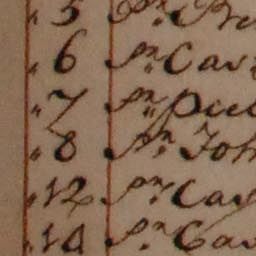 " 5 Sr. Pre
" 6 Sr. Cas
" 7 Sr. Piet
" 8 Sr. Joh
" 12 Sr. Cas
" 14 Sr. Cas